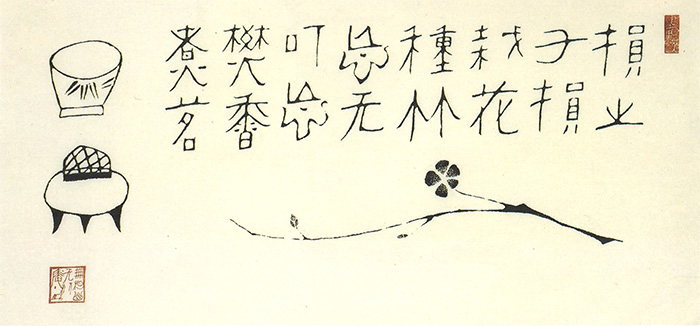 損之
又損
栽花
種竹
忘无
可忘
焚香
煮茗